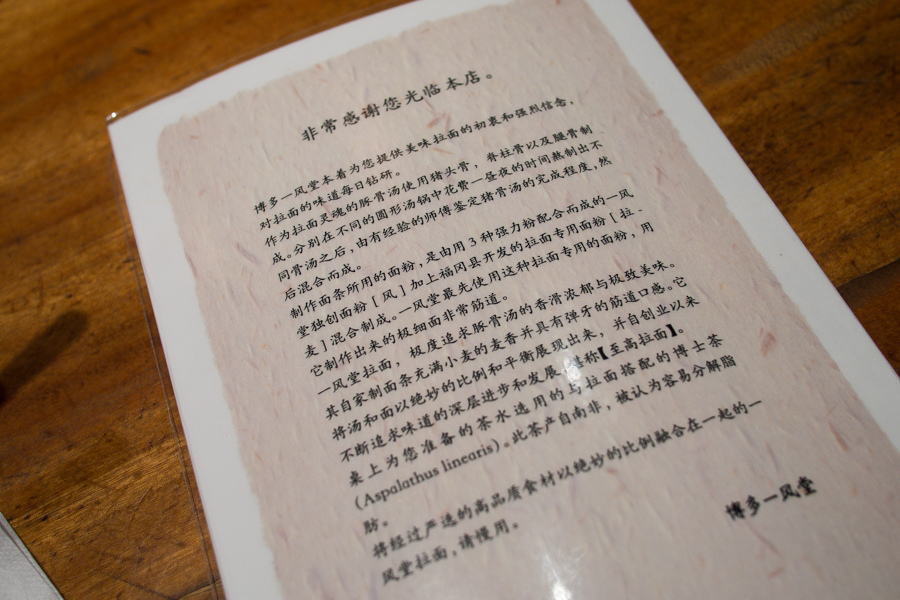 非常感谢您光临本店。
博多一风堂本着为您提供美味拉面的初衷和强烈信念，
对拉面的味道每日钻研。
作为拉面灵魂的豚骨汤使用猪头骨，脊柱骨以及腿骨制
成。分别在不同的圆形汤锅中花费一昼夜的时间熬制出不
同骨汤之后，由有经验的师傅鉴定猪骨汤的完成程度，然
后混合而成。
制作面条所用的面粉，是由用3种强力粉配合而成的一风
堂独创面粉［风］加上福冈县开发的拉面专用面粉［拉-
麦］混合制成。一风堂最先使用这种拉面专用的面粉，用
它制作出来的极细面非常筋道。
一风堂拉面，极度追求豚骨汤的香滑浓郁与极致美味。它
其自家制面条充满小麦的麦香并具有弹牙的筋道口感。
将汤和面以绝妙的比例和平衡展现出来，并自创业以来
不断追求味道的深层进步和发展，堪称【至高拉面】。
桌上为您准备的茶水选用的与拉面搭配的博士茶
(Aspalathus linearis)。此茶产自南非，被认为容易分解脂
肪。
将经过严选的高品质食材以绝妙的比例融合在一起的一
风堂拉面，请慢用。
博多一风堂